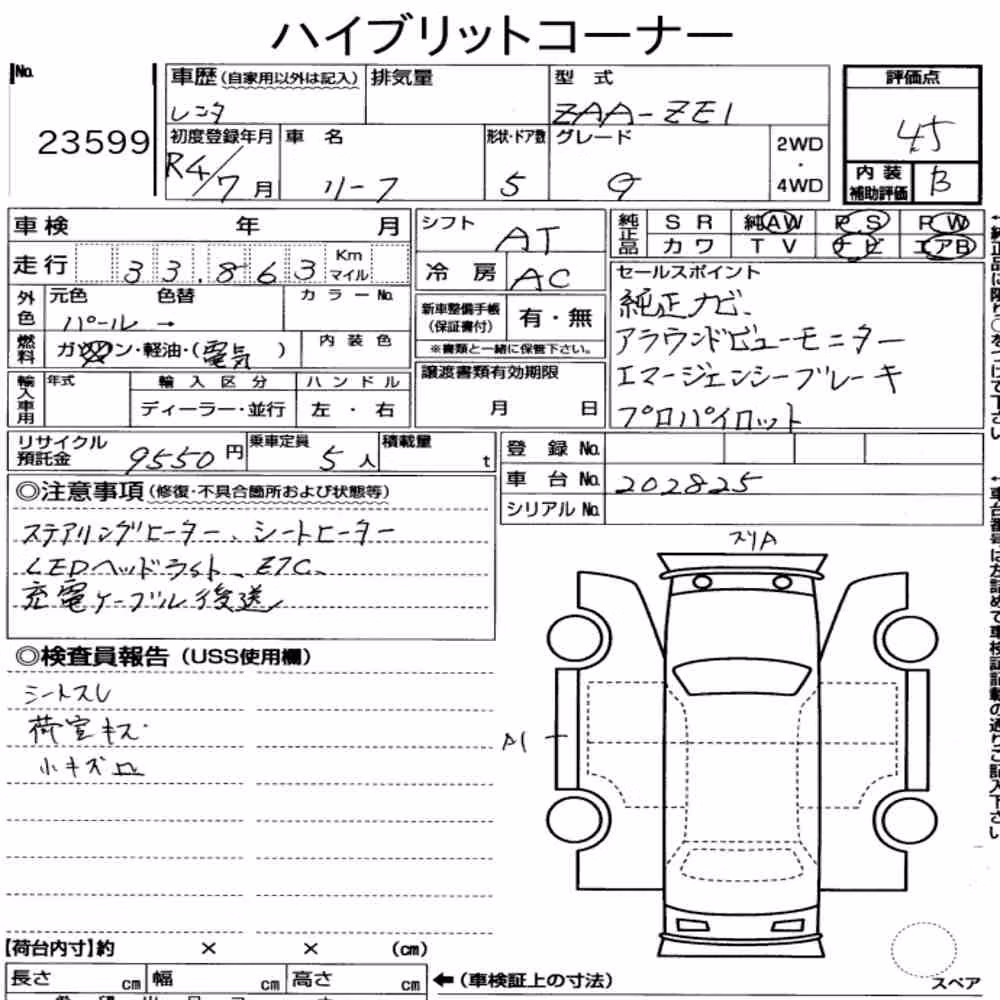 ハイブリットコーナー
No.
23599
車歴(自家用以外は記入)
レンタ
排気量
型 式
ZAA-ZE1
評価点
4.5
初度登録年月
R4/7月
車 名
リーフ
形状・ドア数
5
グレード
G
2WD
・
4WD
内装
補助評価
B
車検 年 月
走行 33,863 Km マイル
外色
元色 色替
パール →
カラーNo.
燃料
ガソリン・軽油・(電気)
内装色
輸入車用
年式
輸入区分
ディーラー・並行
ハンドル
左・右
シフト
AT
冷房
AC
新車整備手帳
(保証書付)
有・無
※書類と一緒に保管下さい。
譲渡書類有効期限
月 日
純正品
SR 純AW PS PW
カワ TV ナビ エアB
セールスポイント
純正ナビ、
アラウンドビューモニター
エマージェンシーブレーキ
プロパイロット
リサイクル
預託金
9550円
乗車定員
5人
積載量
t
登録No.
車台No.
202825
シリアルNo.
◎注意事項(修復・不具合箇所および状態等)
ステアリングヒーター、シートヒーター
LEDヘッドライト、ETC、
充電ケーブル後送
◎検査員報告(USS使用欄)
シートスレ
荷室キズ
小キズ凹
スリA
A1
スペア
【荷台内寸】約 × × (cm)
長さ cm 幅 cm 高さ cm
←(車検証上の寸法)